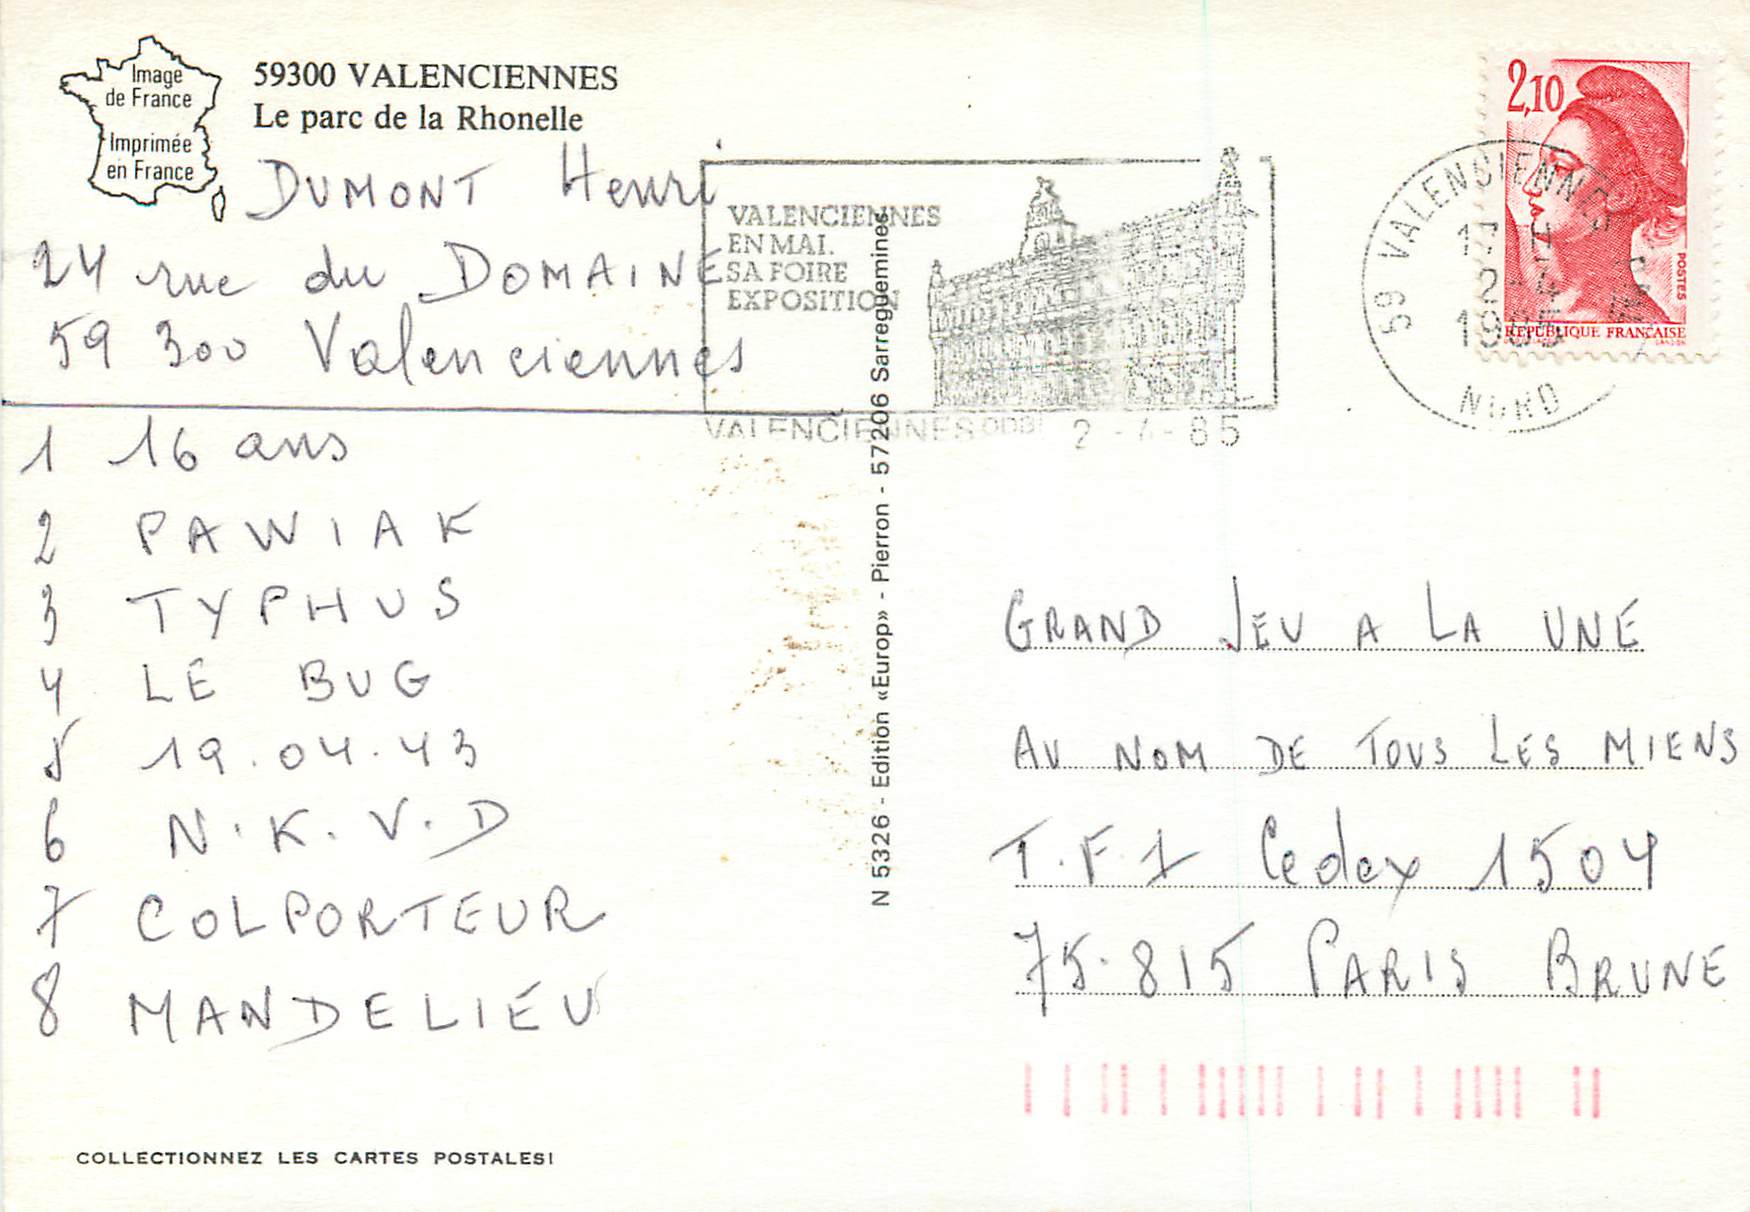 Image
de France
Imprimée
en France
59300 VALENCIENNES
Le parc de la Rhonelle
DUMONT Henri
24 rue du DOMAINE
59 300 Valenciennes
1 16 ans
2 PAWIAK
3 TYPHUS
4 LE BUG
5 19.04.43
6 N.K.V.D
7 COLPORTEUR
8 MANDELIEU
COLLECTIONNEZ LES CARTES POSTALES!
N 5326 - Edition «Europ» - Pierron - 57206 Sarreguemines
VALENCIENNES
EN MAI.
SA FOIRE
EXPOSITION
VALENCIENNES 2-4-85
59 VALENCIENNES
17
2-4
1985
NORD
2,10
POSTES
REPUBLIQUE FRANÇAISE
GRAND JEU A LA UNE
AU NOM DE TOUS LES MIENS
T.F.1 Cedex 1504
75.815 PARIS BRUNE